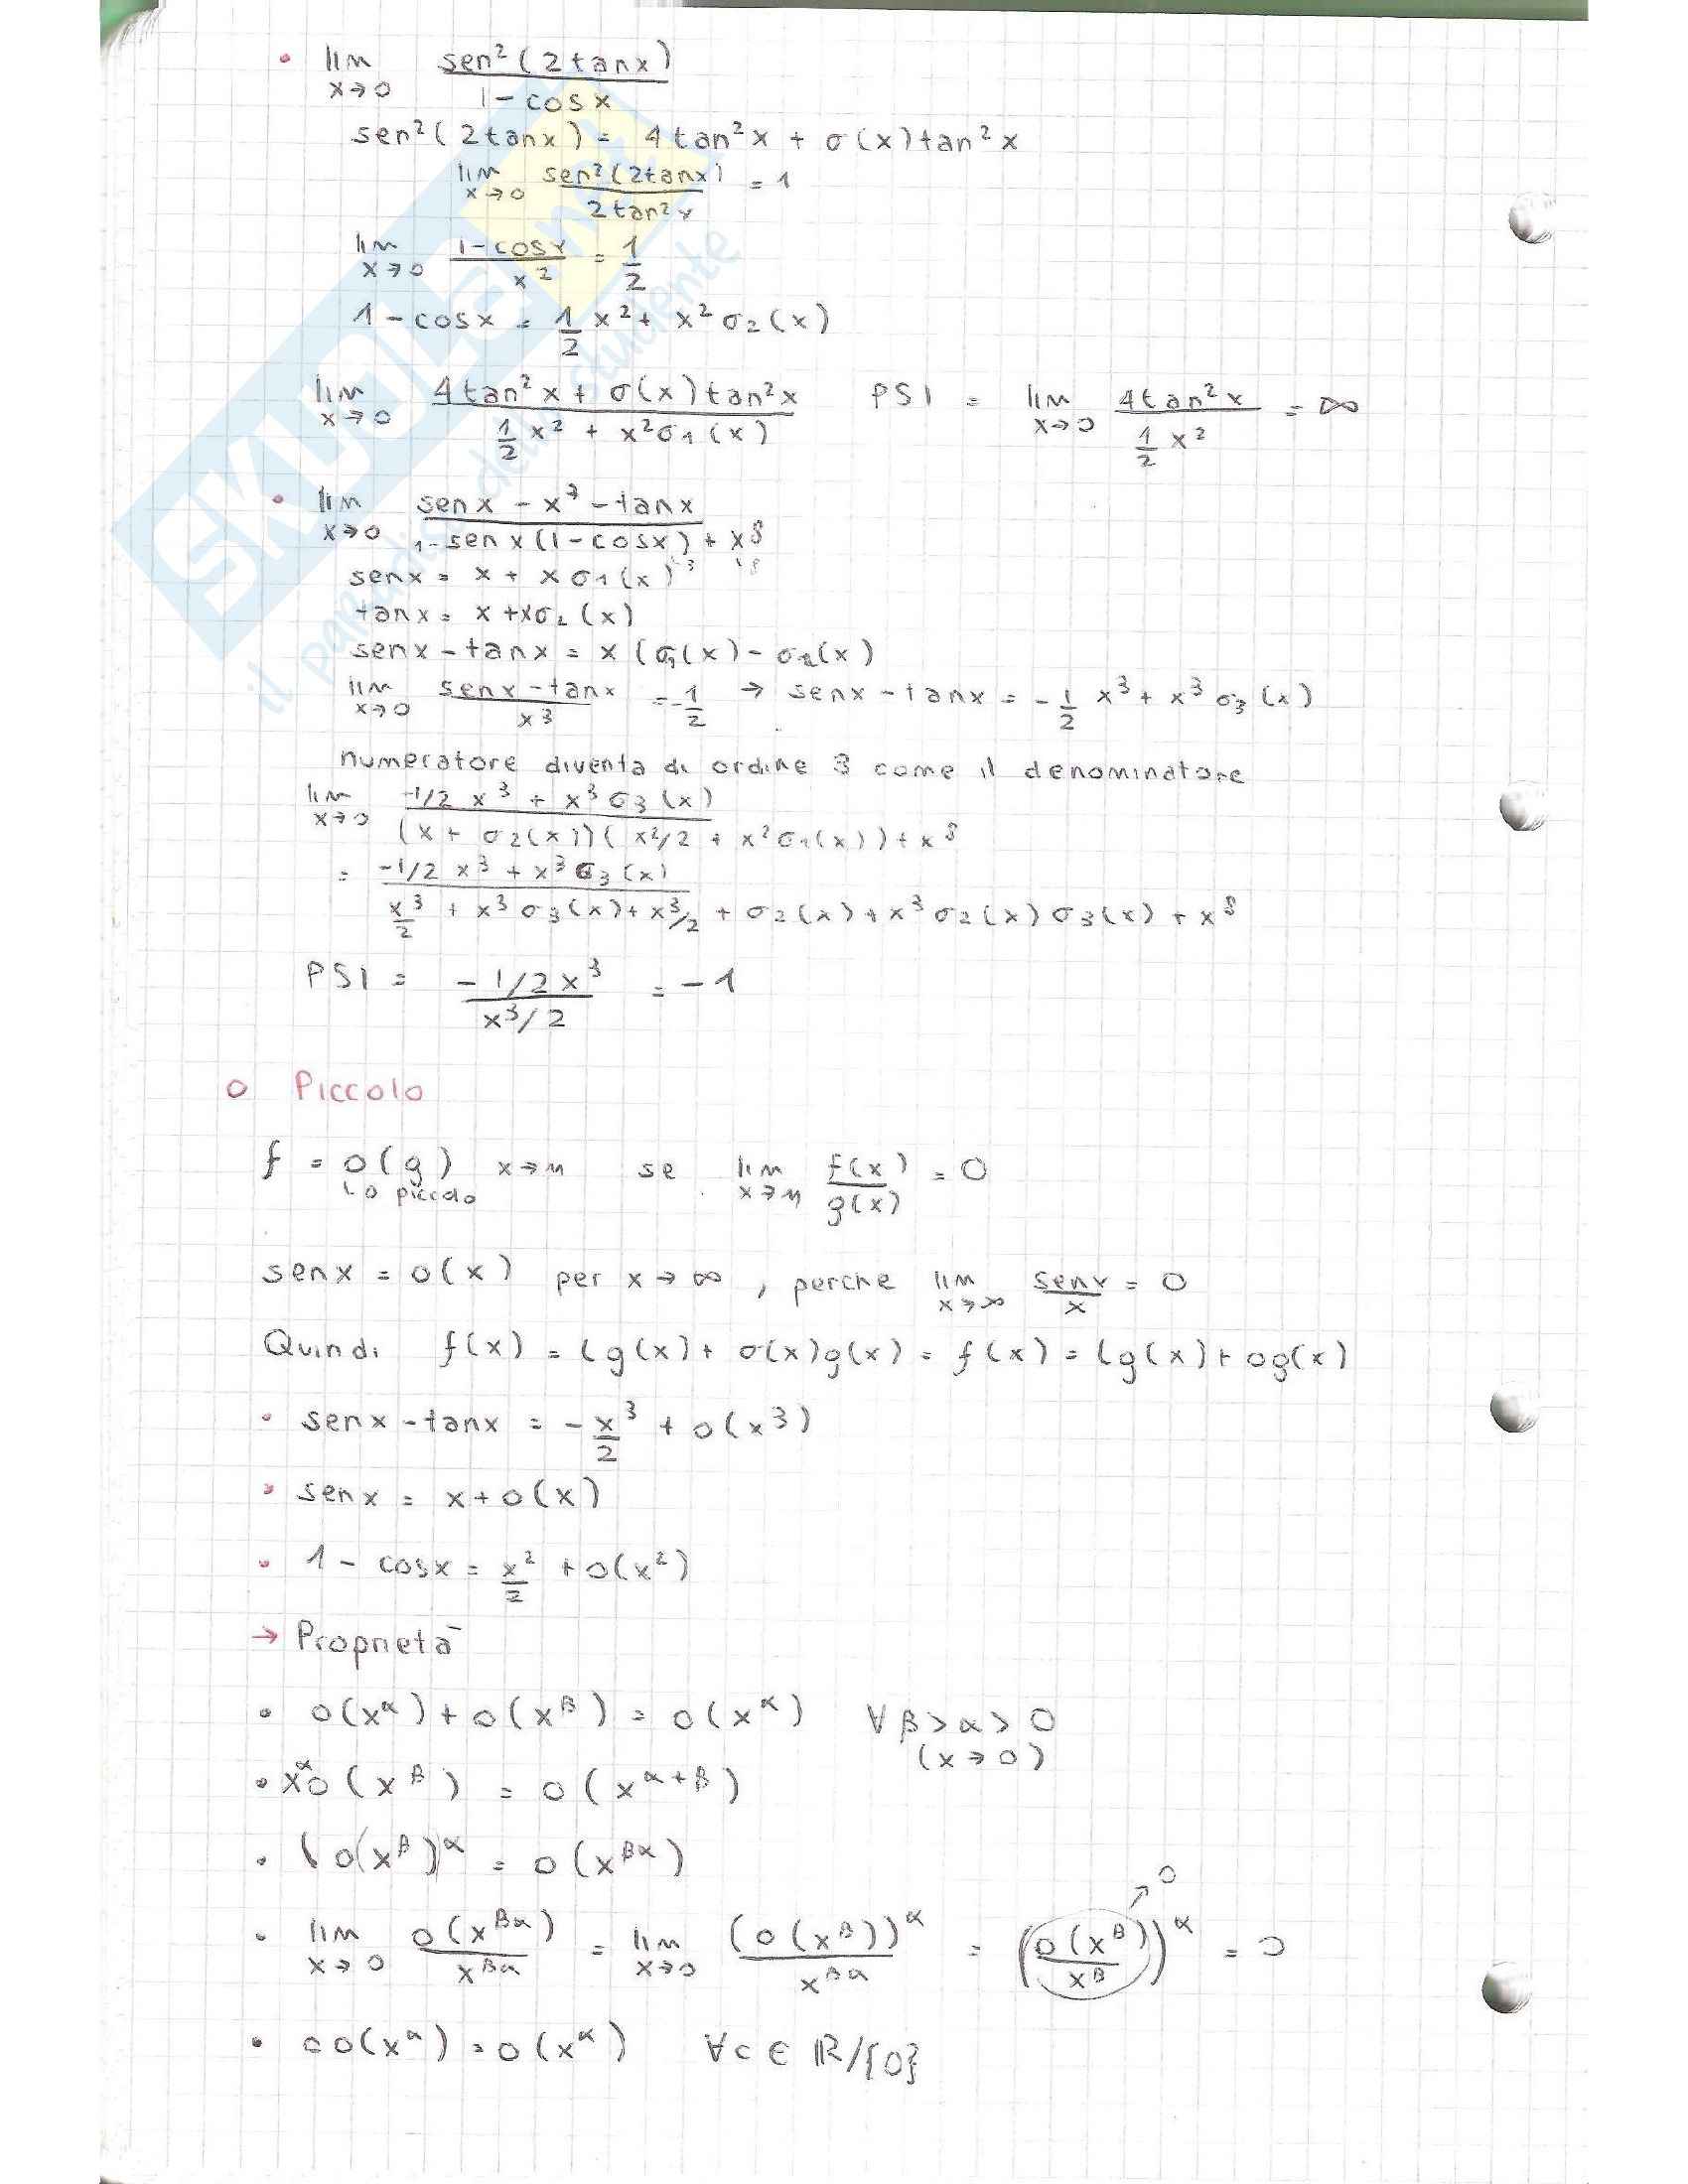 • lim x→0 sen²(2tanx) / 1-cosx
sen²(2tanx) = 4tan²x + σ(x)tan²x
lim x→0 sen²(2tanx) / 2tan²x = 1
lim x→0 1-cosx / x² = 1/2
1-cosx = 1/2 x² + x²σ₂(x)
lim x→0 4tan²x + σ(x)tan²x / 1/2 x² + x²σ₁(x) PSI = lim x→0 4tan²x / 1/2 x² = ∞
• lim x→0 senx - x⁷ - tanx / senx(1-cosx) + x⁸
senx = x + xσ₁(x)
tanx = x + xσ₂(x)
senx - tanx = x(σ₁(x) - σ₂(x)
lim x→0 senx - tanx / x³ = -1/2 → senx - tanx = -1/2 x³ + x³σ₃(x)
numeratore diventa di ordine 3 come il denominatore
lim x→0 -1/2 x³ + x³σ₃(x) / (x + σ₂(x))(x²/2 + x²σ₁(x)) + x⁸
= -1/2 x³ + x³σ₃(x) / x³/2 + x³σ₃(x) + x³/2 + σ₂(x) + x³σ₂(x)σ₃(x) + x⁸
PSI = -1/2x³ / x³/2 = -1
o Piccolo
f = o(g) x→η se lim x→η f(x)/g(x) = 0
↳ o piccolo
senx = o(x) per x→∞, perche lim x→∞ senx/x = 0
Quindi f(x) = lg(x) + σ(x)g(x) = f(x) = lg(x) + og(x)
• senx - tanx = -x³/2 + o(x³)
• senx = x + o(x)
• 1 - cosx = x²/2 + o(x²)
→ Proprietà
• o(x^α) + o(x^β) = o(x^α) ∀β>α>0
(x→0)
• x^α o(x^β) = o(x^α+β)
• (o(x^β)^α = o(x^βα)
• lim x→0 o(x^βα) / x^βα = lim x→0 (o(x^β))^α / x^βα = (o(x^β) / x^β)^α = 0
↗ 0
• co(x^α) = o(x^α) ∀c∈ℝ/{0}
il paradiso dello studente